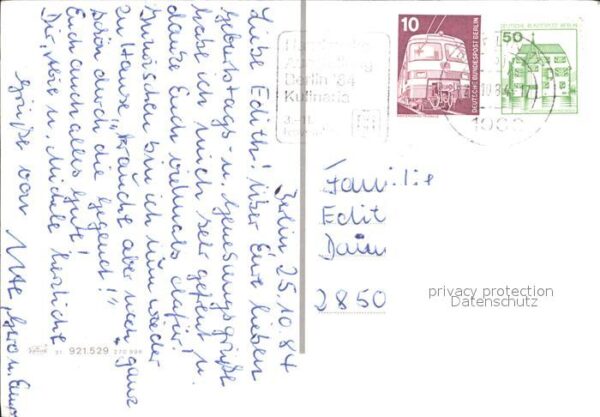 Berlin 25.10.84
Liebe Edith! Über Eure lieben
Geburtstags- u. Genesungsgrüße
habe ich mich sehr gefreut u.
danke Euch vielmals dafür.
Inzwischen bin ich nun wieder
zu Hause, "krauche" aber noch ganz
schön durch die Gegend!"
Euch auch alles Gute!
Dir, u. Michele herzliche
Grüße von
Familie
Edit
2850
privacy protection
Datenschutz
10
DEUTSCHE BUNDESPOST BERLIN
50
DEUTSCHE BUNDESPOST BERLIN
Berlin '84
Kulinaria
921.529